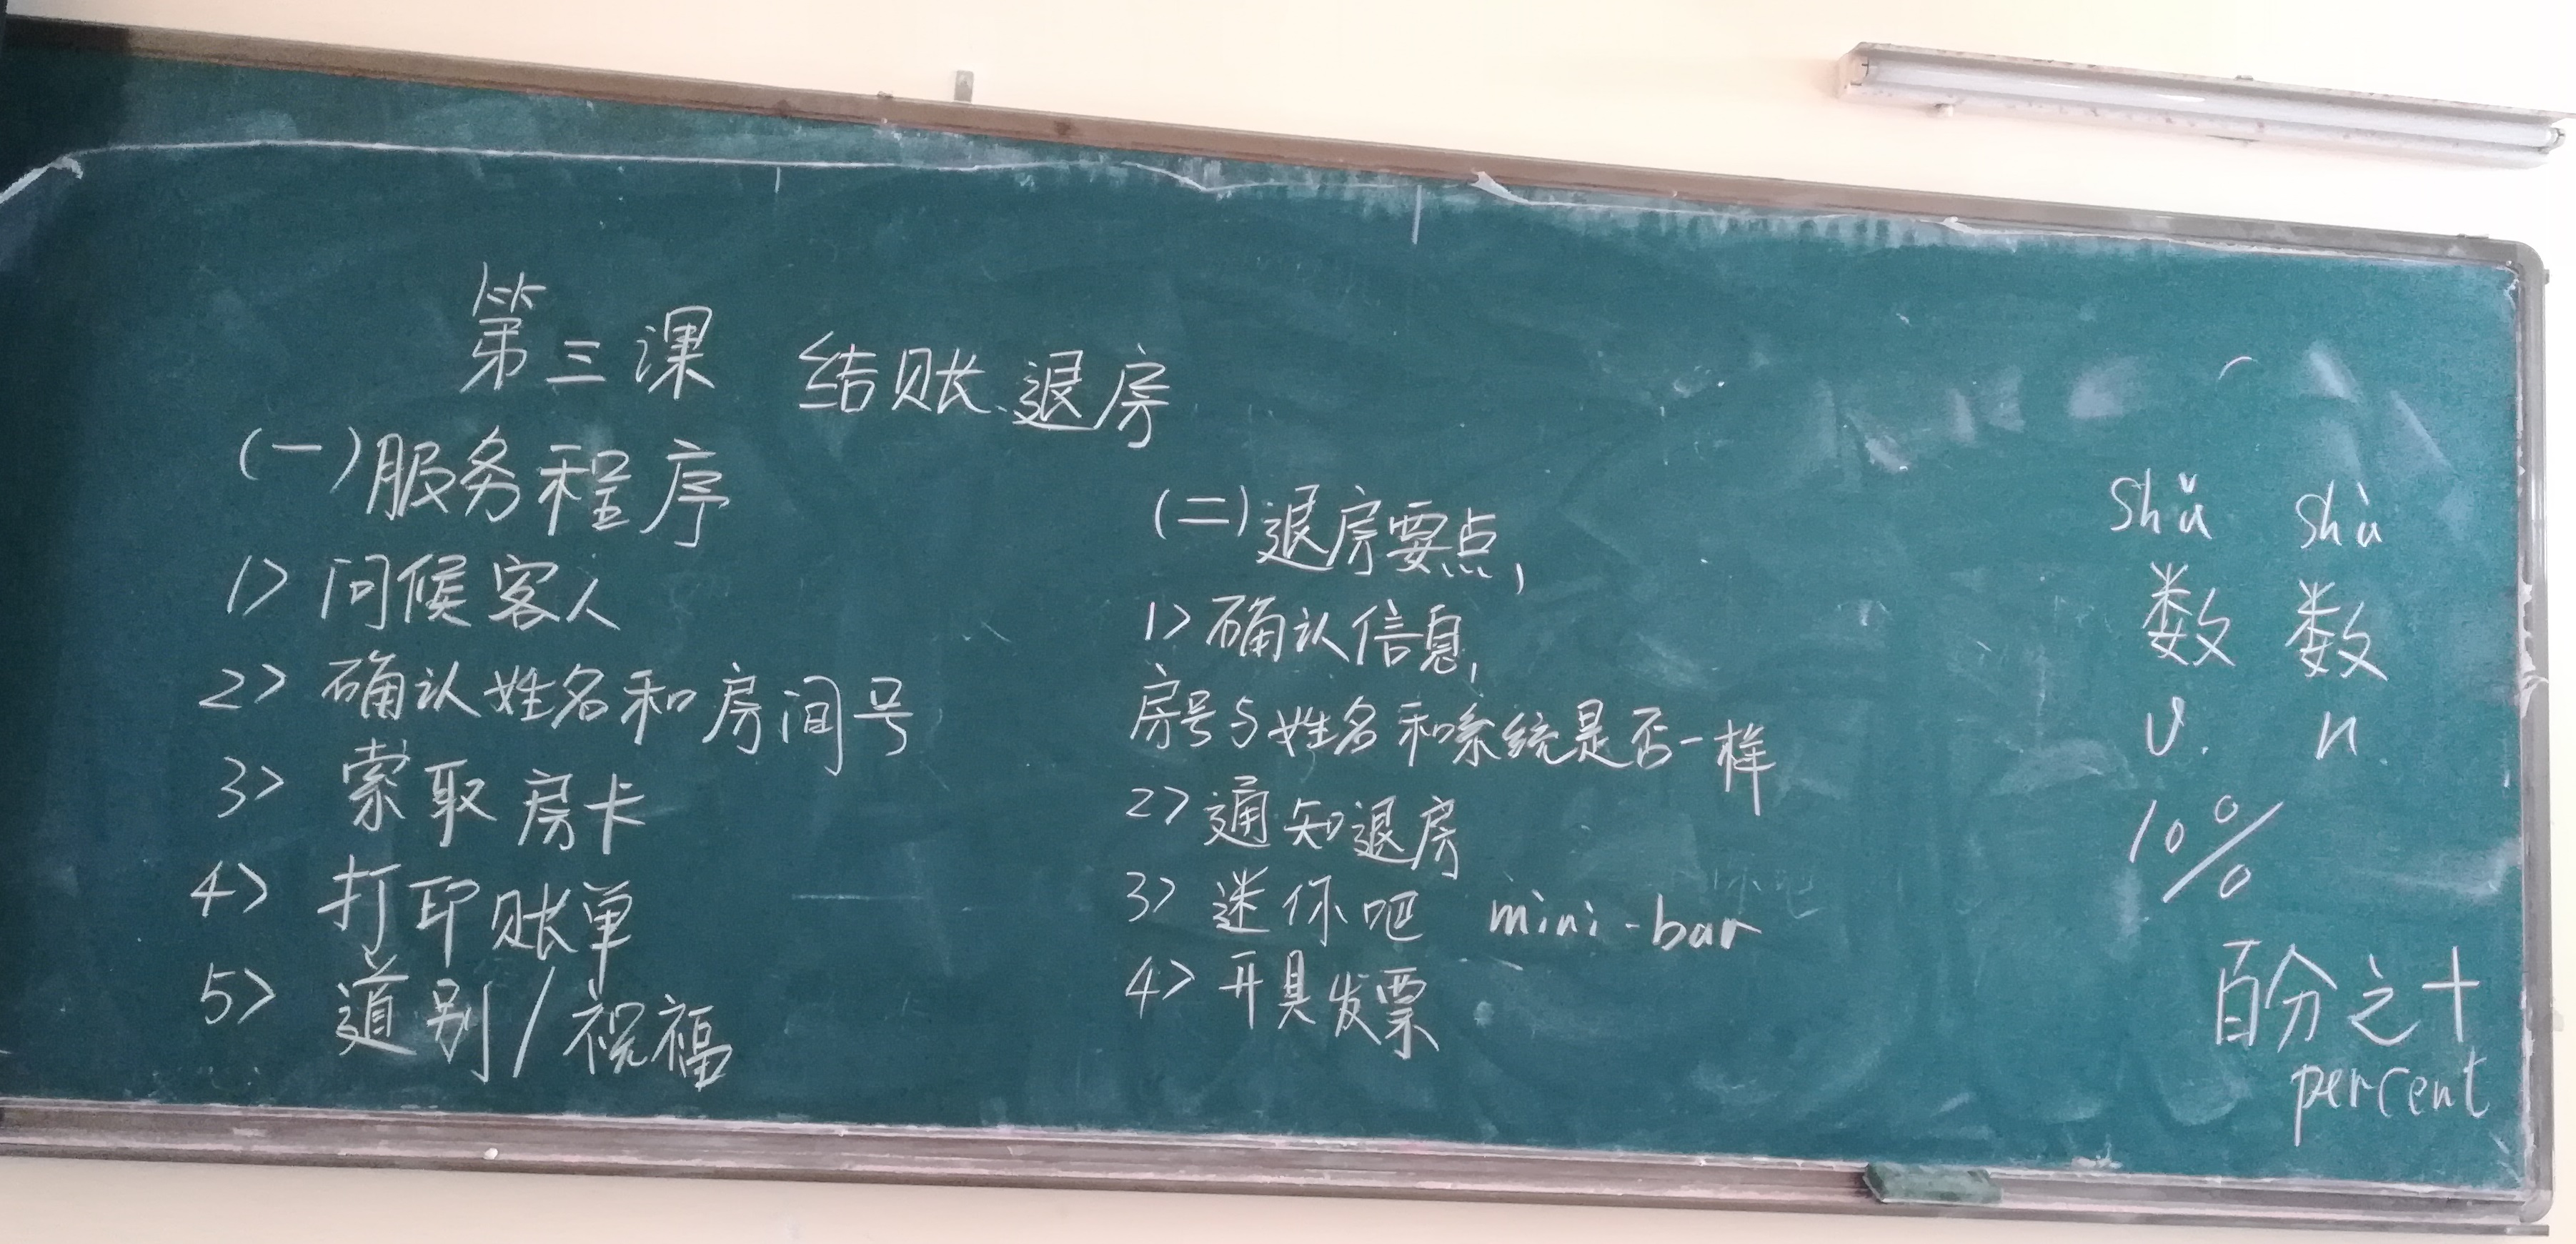 第三课 结账、退房
(一)服务程序
1> 问候客人
2> 确认姓名和房间号
3> 索取房卡
4> 打印账单
5> 道别/祝福
(二)退房要点,
1> 确认信息,
房号与姓名和系统是否一样
2> 通知退房
3> 迷你吧 mini-bar
4> 开具发票
shǔ shù
数 数
v. n
10%
百分之十
percent